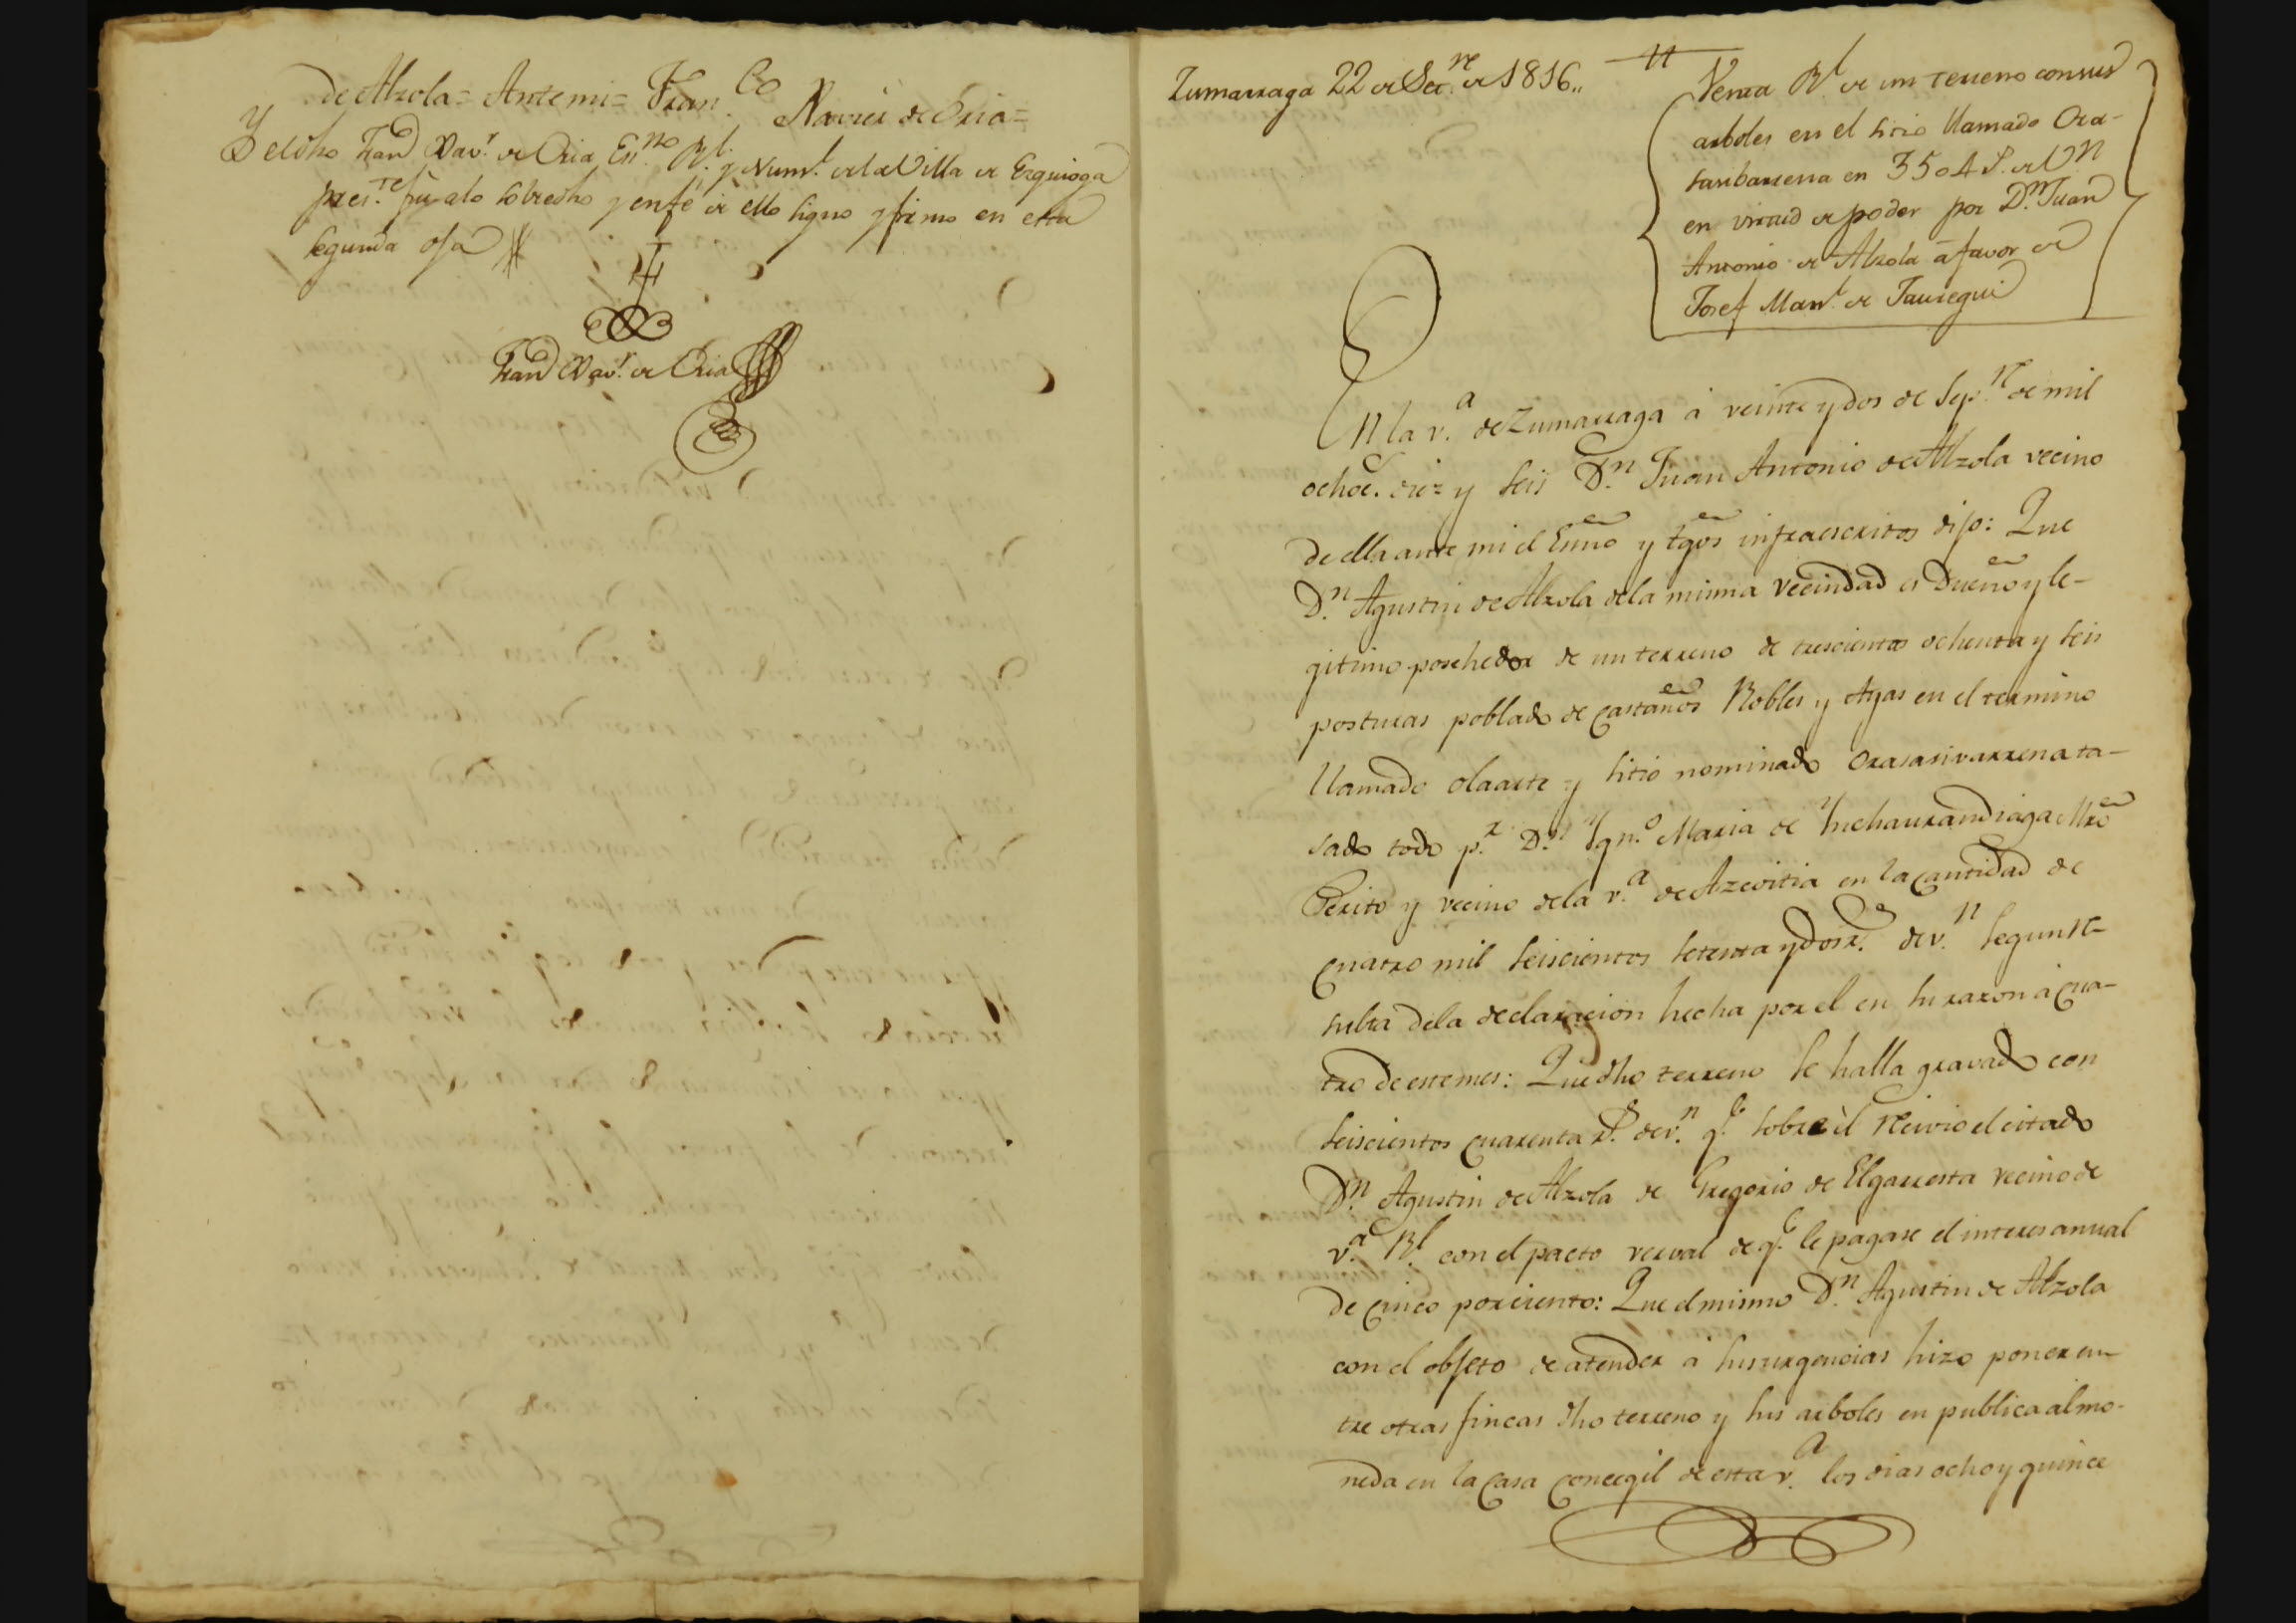 de Alzola = Ante mi = Fran.co Xavier de Oria =
Y el dho Fran.co Xav.r de Oria Esn.no Rl. y Num.l de la Villa de Ezquioga
pres.te fui a lo sobredho y en fe de ello signo y firmo en esta
segunda oja
Fran.co Xav.r de Oria
Zumarraga 22 de Sec.re de 1816..
Venta Rl. de un terreno con sus
arboles en el sitio llamado Ora-
sanbarrena en 3504 r.s de Vn
en virtud de poder por Dn. Juan
Antonio de Alzola á favor de
Josef Man.l de Jauregui
En la v.a de Zumarraga á veinte y dos de Sep.re de mil
ochoc.s diez y seis D.n Juan Antonio de Alzola vecino
de ella ante mi el Esno y tgos infraescritos dijo: Que
D.n Agustin de Alzola de la misma vecindad es Dueño y le-
gitimo posehedor de un terreno de trescientos ochenta y seis
posturas poblado de Castaños Robles y Ayas en el termino
llamado olaarte y sitio nominado Orasasivarrena ta-
sado todo p.r D.n Ygn.o Maria de Ynchaurandiaga Mro
Perito y vecino de la v.a de Azcoitia en la cantidad de
cuatro mil seiscientos setenta y dos r.s de v.n segun re-
sulta de la declaracion hecha por el en su razon á cua-
tro de este mes: Que dho terreno se halla gravado con
seiscientos cuarenta r.s de v.n q.e sobre èl recivio el citado
D.n Agustin de Alzola de Gregorio de Elgarresta vecino de
v.a Rl. con el pacto verval de q.e le pagase el interes anual
de cinco por ciento: Que el mismo D.n Agustin de Alzola
con el objeto de atender á sus urgencias hizo poner en-
tre otras fincas dho terreno y sus arboles en publica almo-
neda en la Casa Concegil de esta v.a los dias ocho y quince